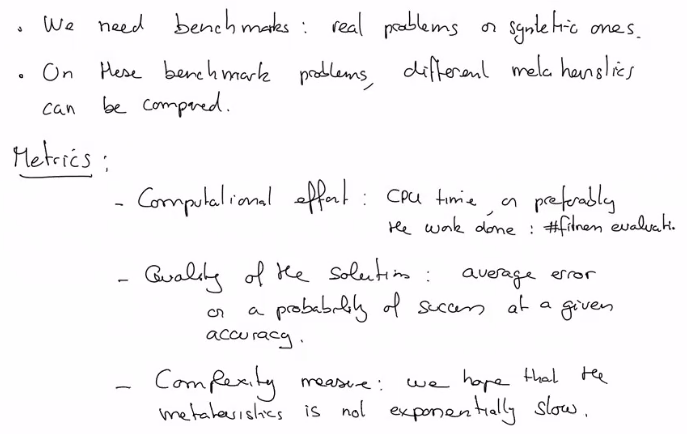 • We need benchmarks : real problems or syntetric ones.
• On these benchmark problems, different metaheuristics
can be compared.
Metrics :
- Computational effort : CPU time, or preferably
the work done : #fitness evaluati.
- Quality of the solution : average error
or a probability of success at a given
accuracy.
- Complexity measure : we hope that the
metaheuristics is not exponentially slow.